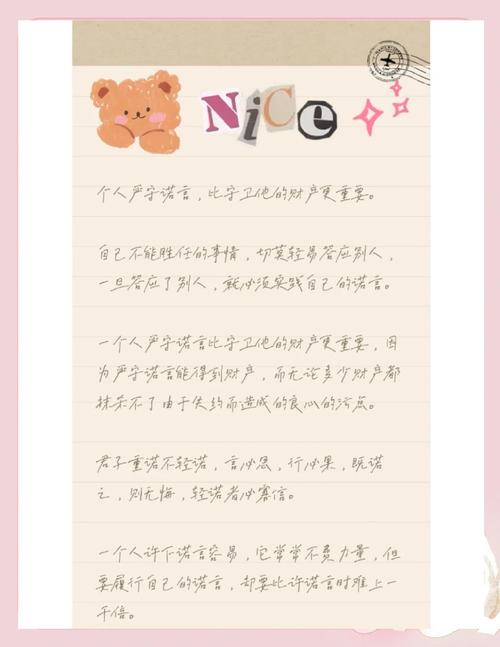 NiCe
个人严守诺言，比守卫他的财产更重要。
自己不能胜任的事情，切莫轻易答应别人，
一旦答应了别人，就必须实践自己的诺言。
一个人严守诺言比守卫他的财产更重要，因
为严守诺言能得到财产，而无论多少财产都
抹杀不了由于失约而造成的良心的污点。
君子重诺不轻诺，言必思，行必果，既诺
之，则无悔，轻诺者必寡信。
一个人许下诺言容易，它常常不费力量，但
要履行自己的诺言，却要比许诺言时难上一
千倍。